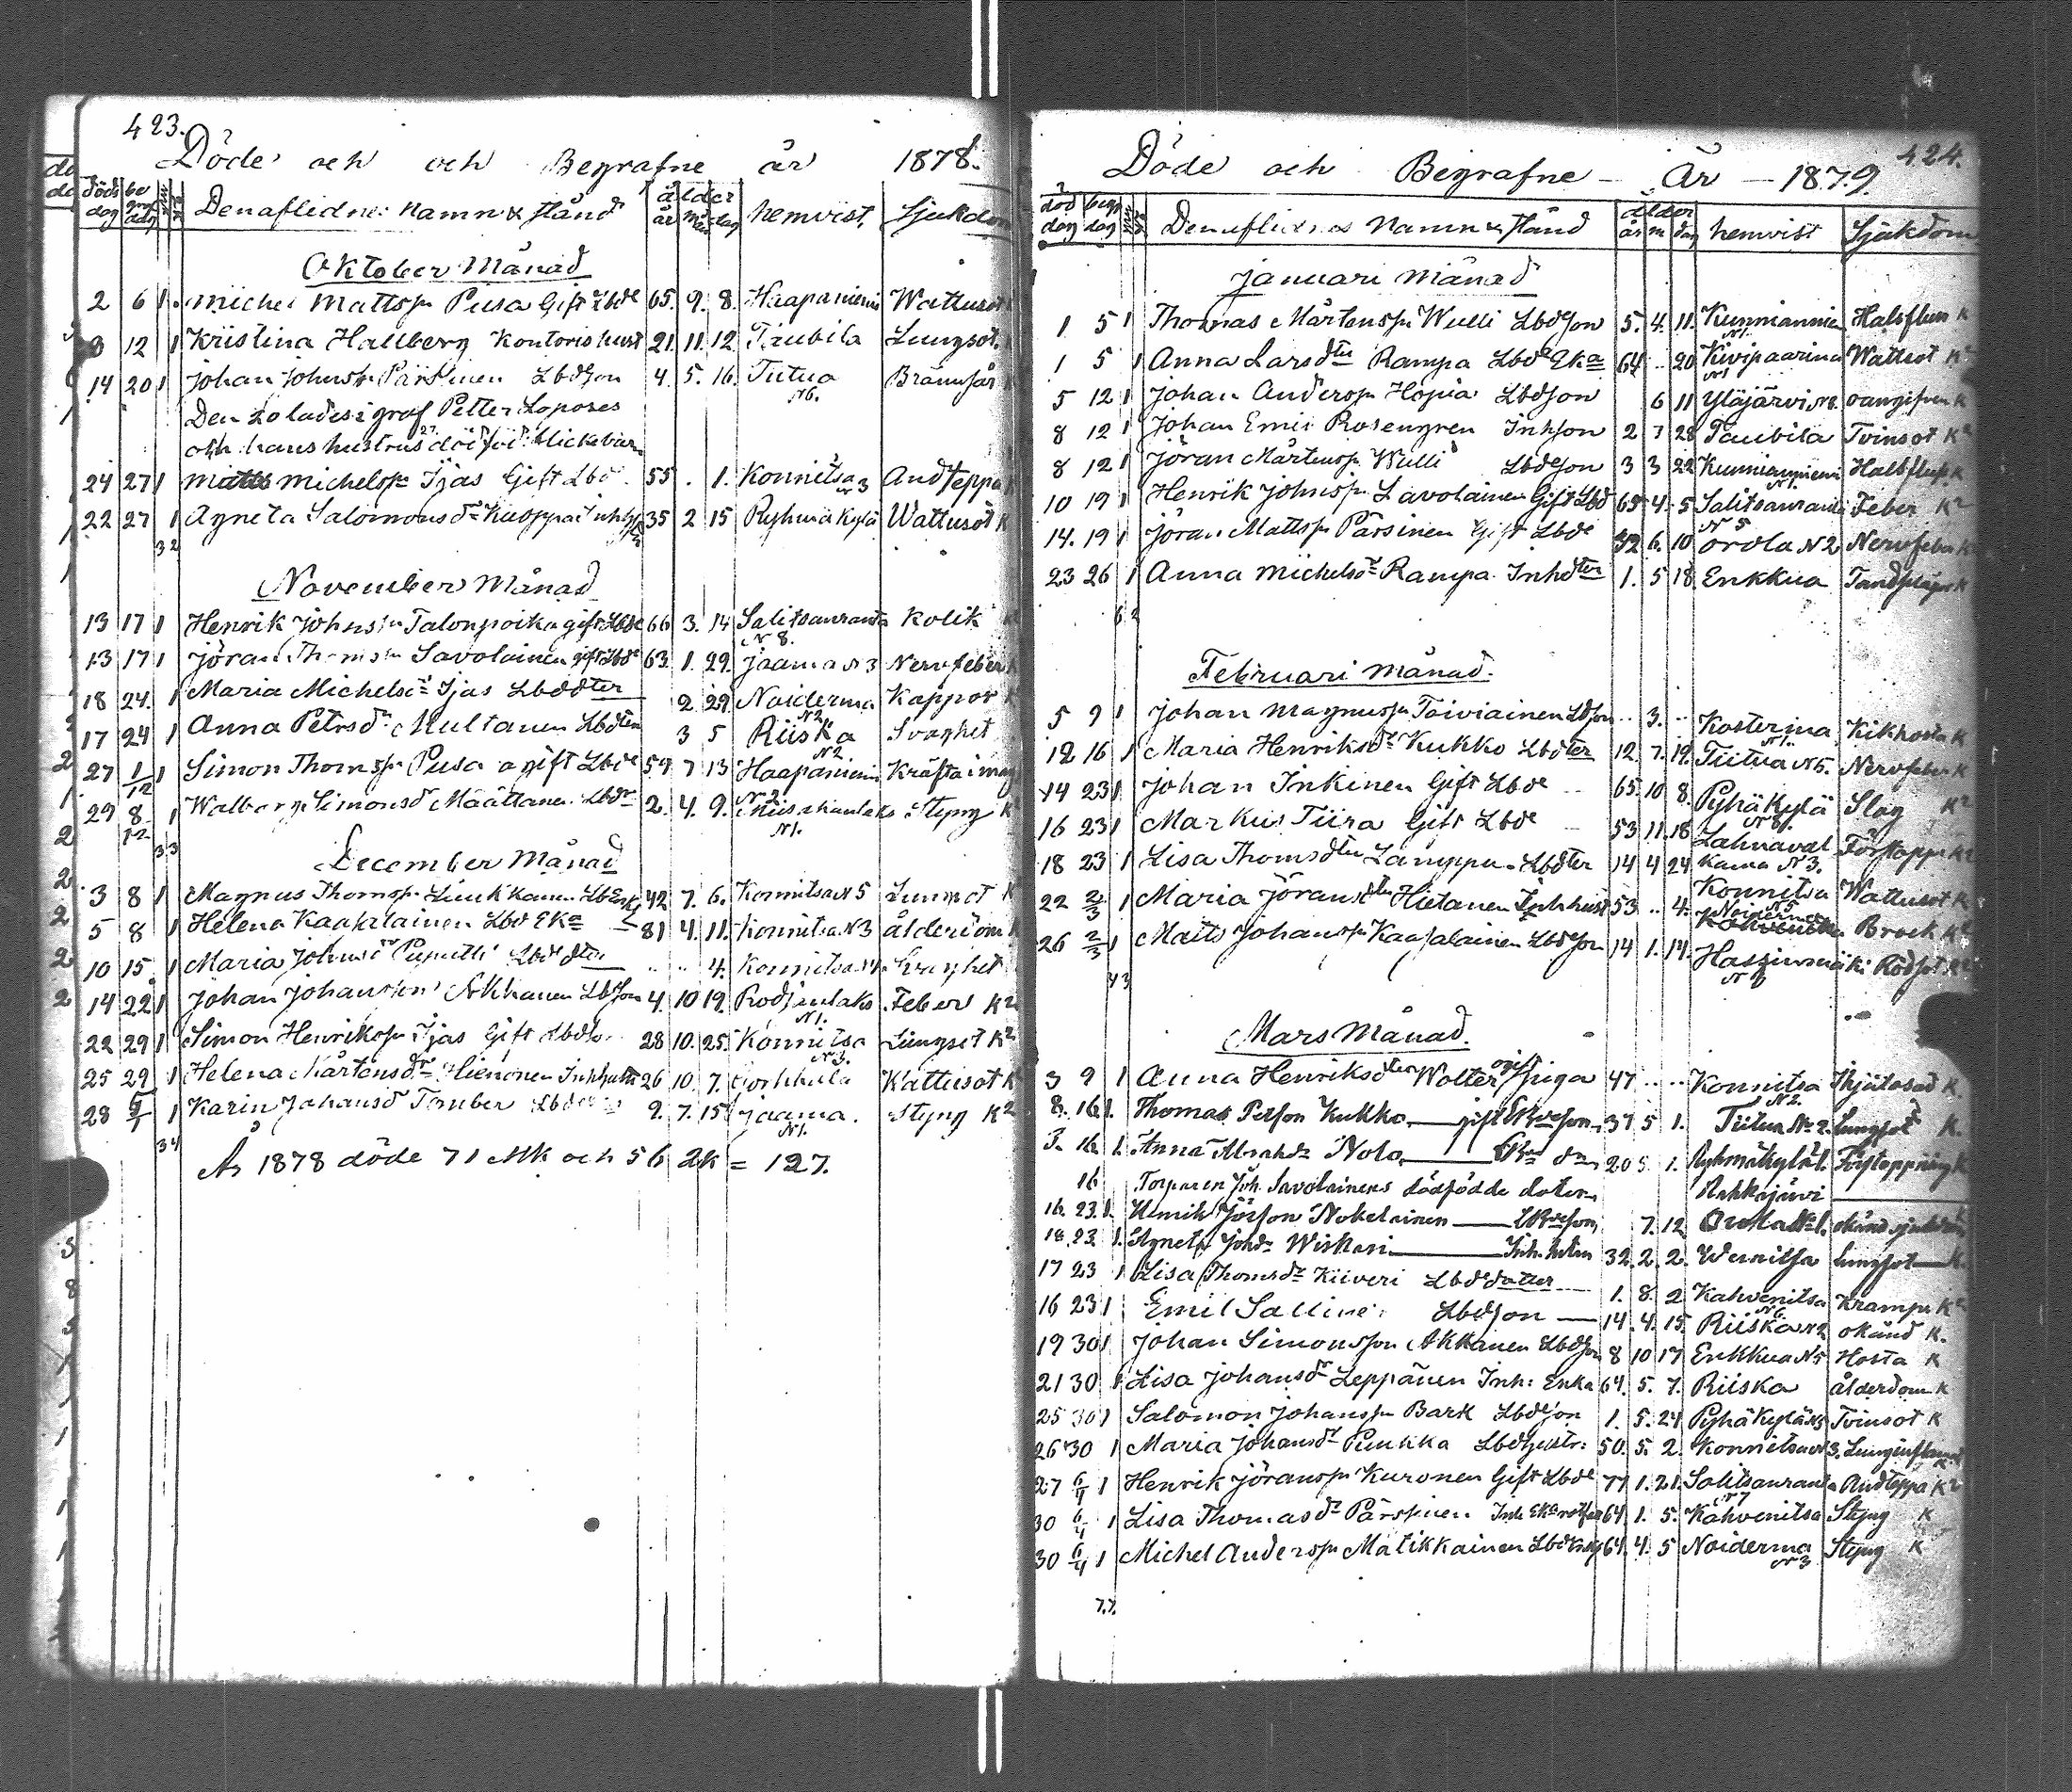 423.
Döde och och Begrafne år 1878.
döds dag be graf dag Den aflidnes namn & stånd ålder år mån dag hemvist. Sjukdom
Oktober Månad
2 6 1 Michel Mattsn Pusa Gift Lbde 65. 9. 8. Haapaniemi Wattusot
8 12 1 Kristina Hallberg Kontorishust 21. 11. 12. Taubila Lungsot.
14 20 1 Johan Johnsn Pärsinen Lbdson 4. 5. 16. Tiitua N6. Brännsår
Den 20 lades i graf Petter Loposes
och hans hustrus död föd: flickebarn
24 27 1 Matts Michelsn Ijas Gift Lbd 55 . 1. Konnitsa N3 Andteppa
22 27 1 Agneta Salomonsdr Kuoppa Inh 35 2 15 Ryhmäkylä Wattusot K
3 2
November Månad
13 17 1 Henrik Johnsn Talonpoika gift Lbde 66 3. 14 Salitsanranta N 8. Kolik
13 17 1 Jöran Thomsn Savolainen gift Lbde 63. 1. 29. Jaama N3 Nervfeber
18 24. 1 Maria Michelsdr Ijas Lbddter 2. 29. Noiderma N2 Kappor K
17 24 1 Anna Petrsdr Multanen Lbdten 3 5 Riiska N2 Svaghet
27 1/12 1 Simon Thomsn Pusa ogift Lbde 59 7 13 Haapaniemi N2 Kräfta i mag
29 8/12 1 Walborg Simonsd Määttänen Lbdr 2. 4. 9. N1. Styng K
3 3
December Månad
3 8 1 Magnus Thomsn Liukkanen LbEnk 42 7. 6. Konnitsa N5 Lungsot K
5 8 1 Helena Kaakalainen Lbd Eka 81 4. 11. Konnitsa N3 ålderdom
10 15 1 Maria Johnsdr Puputti Lbddtr .. .. 4. Konnitsa N4 Svaghet
14 22 1 Johan Johansson Akkanen Lbson 4. 10 19. Rodjinlaks N1. Feber K2
22 29 1 Simon Henriksn Ijas Gift Lbde 28 10. 25. Konnitsa N3. Lungsot K2
25 29 1 Helena Mårtensdr Hienonen Inhhust 26 10 7. Wattusot K
28 6/1 1 Karin Johansd Tauber 2. 7. 15 Jaama. N1. Styng K2
3 4
År 1878 döde 71 Mk och 56 2K = 127.
424.
Döde och Begrafne – År – 1879.
död dag begr dag Den aflidnes Namn & stånd ålder år m dag hemvist Sjukdom
Januari Månad
1 5 1 Thomas Mårtensn Wulli Lbdson 5. 4. 11. Kunnianniemi N1. Halsflus K
1 5 1 Anna Larsdtr Rampa Lbd Eka 64 .. 20 Kivipaarina N1 Wattsot K2
5 12 1 Johan Andersn Hopia Lbdson 6 11 Yläjärvi N8. oangifven K
8 12 1 Johan Emil Rosengren Inhson 2 7 28 Taubila Tvinsot K2
8 12 1 Jöran Mårtensn Wulli Lbdeson 3 3 22 Kunnianniemi N1. Halsflus K
10 19 1 Henrik Johnsn Savolainen Gift Lbd 65 4. 5 Salitsanranta N 5 Feber K2
14. 19 1 Jöran Mattsn Pärsinen Gift Lbde 32 6. 10 Orola N2 Nervfeber K
23 26 1 Anna Michelsdr Rampa Inhdter 1. 5 18 Enkkua Tandsläpn K
6 2
Februari Månad.
5 9 1 Johan Magnussn Toiviainen Lbson .. 3. .. Kosterina N1. Kikhosta K
12 16 1 Maria Henriksdr Kukko Lbdter 12. 7. 19. Tiitua N5. Nervfeber K
14 23 1 Johan Inkinen Gift Lbde 65. 10 8. Pyhäkylä N8. Slag K2
16 23 1 Markus Tiira Gift Lbde 53 11. 18 Lahnaval Förstoppn K2
18 23 1 Lisa Thomsdtr Lamppu Lbdter 14 4 24 N 3.
22 2/3 1 Maria Jöransdtr Hietanen Inhhust 53 .. 4. Konnitsa N5 Wattusot K
26 2/3 1 Matts Johansn Kaasalainen Lbdson 14 1. 14. Noiderma Brock K2
Rödsot
4 3
Mars Månad.
3 9 1 Anna Henriksdter Wolter ogift piga 47 .. .. Konnitsa N2. K.
8. 16 1. Thomas Persson Kukko gift Lbdeson 37 5 1. Tiitua No 2. Lungsot K.
3. 16. 1. Anna Abrahdr Nola 20 5. 1. Ryhmäkylä 1. Förstoppning K
16 Torparen Joh. Savolainens dödfödda doter Rahkajärvi
16. 23. 1. Henrik Jösson Nokelainen Lbdeson 7. 12 Orola No 1.
18. 23 1. Agneta Johdr Wiskari Inh. hstru 32. 2. 2. Wernitsa lungsot K.
17 23 1 Lisa Thomsdr Kiiveri Lbdedotter 1. 8. 2 Kahvenitsa N6 Kramp K2
16 23 1 Emil Salline Lbdson 14. 4. 15. Riiska N2 okänd K.
19 30 1 Johan Simonsson Akkanen Lbdson 8 10 17 Enkkua N5 Hosta K
21 30 1 Lisa Johansdr Leppänen Inh: Enka 64. 5. 7. Riiska ålderdom K
25 30 1 Salomon Johanssn Bark Lbdson 1. 5. 24 Pyhäkylä N5 Tvinsot K
26 30 1 Maria Johansdr Puukka Lbdhustr: 50. 5. 2. Konnitsa N3. Lunginflam
27 6/4 1 Henrik Jöransn Kuronen Gift Lbde 77 1. 21. Salitsanranta N7 Andteppa K2
30 6/4 1 Lisa Thomasdr Pärssinen Inh Eka 64 1. 5. Kahvenitsa Styng K
30 6/4 1 Michel Andersn Matikkainen Lbdeson 64. 4. 5 Noiderma N3 Styng K
7. 7.